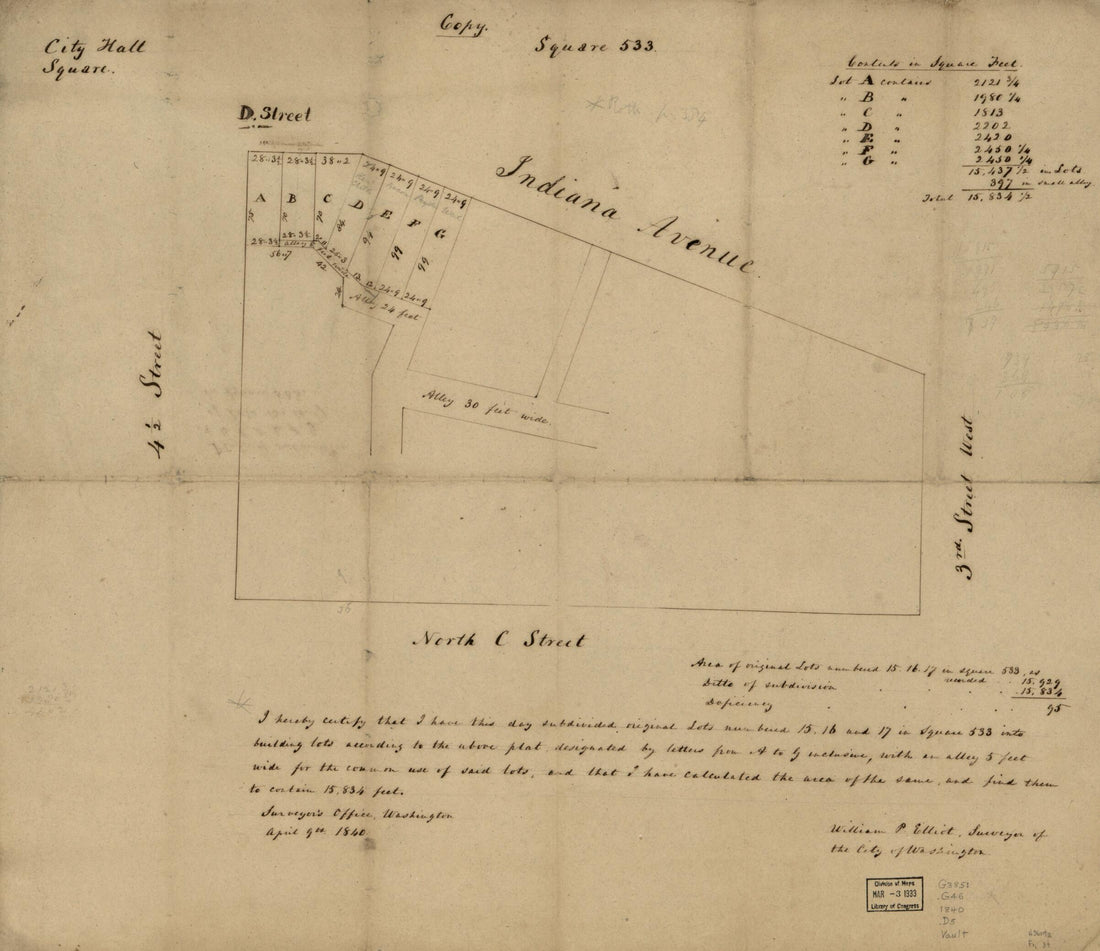 Copy.
City Hall
Square.
Square 533.
Contents in Square Feet.
Lot A contains 2121 3/4
" B " 1980 1/4
" C " 1813
" D " 2202
" E " 2420
" F " 2450 1/4
" G " 2450 1/4
15,437 1/2 in Lots
397 in small alley
Total 15,834 1/2
D. Street
28-3½ 28-3½ 38-2 24-9 24-9 24-9 24-9
A B C D E F G
70 70 70 84 94 99 99
28-3½ 28-3½
alley 5 feet wide
56-7
42
24-3
12
24-9 24-9
Alley 24 feet
Indiana Avenue.
Alley 30 feet wide.
4½ Street
3rd. Street West
36
North C Street
Area of original Lots numbered 15. 16. 17 in square 533, as
recorded 15.929
Ditto of subdivision 15,834
Deficiency 95
I hereby certify that I have this day subdivided original Lots numbered 15. 16 and 17 in Square 533 into
building lots according to the above plat, designated by letters from A to G inclusive, with an alley 5 feet
wide for the common use of said lots, and that I have calculated the area of the same, and find them
to contain 15,834 feet.
Surveyor's Office, Washington
April 9th 1840
William P. Elliot, Surveyor of
the City of Washington.
Division of Maps
MAR -3 1933
Library of Congress
G3851
.G46
1840
.D5
Vault